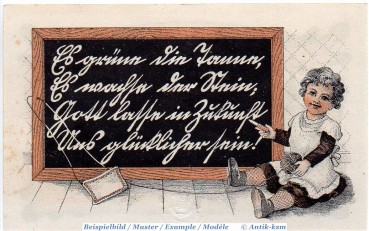 Es grüne die Tanne,
Es wachse der Stein,
Gott lasse in Zukunft
Uns glücklicher sein!
Beispielbild / Muster / Example / Modéle © Antik-ksm